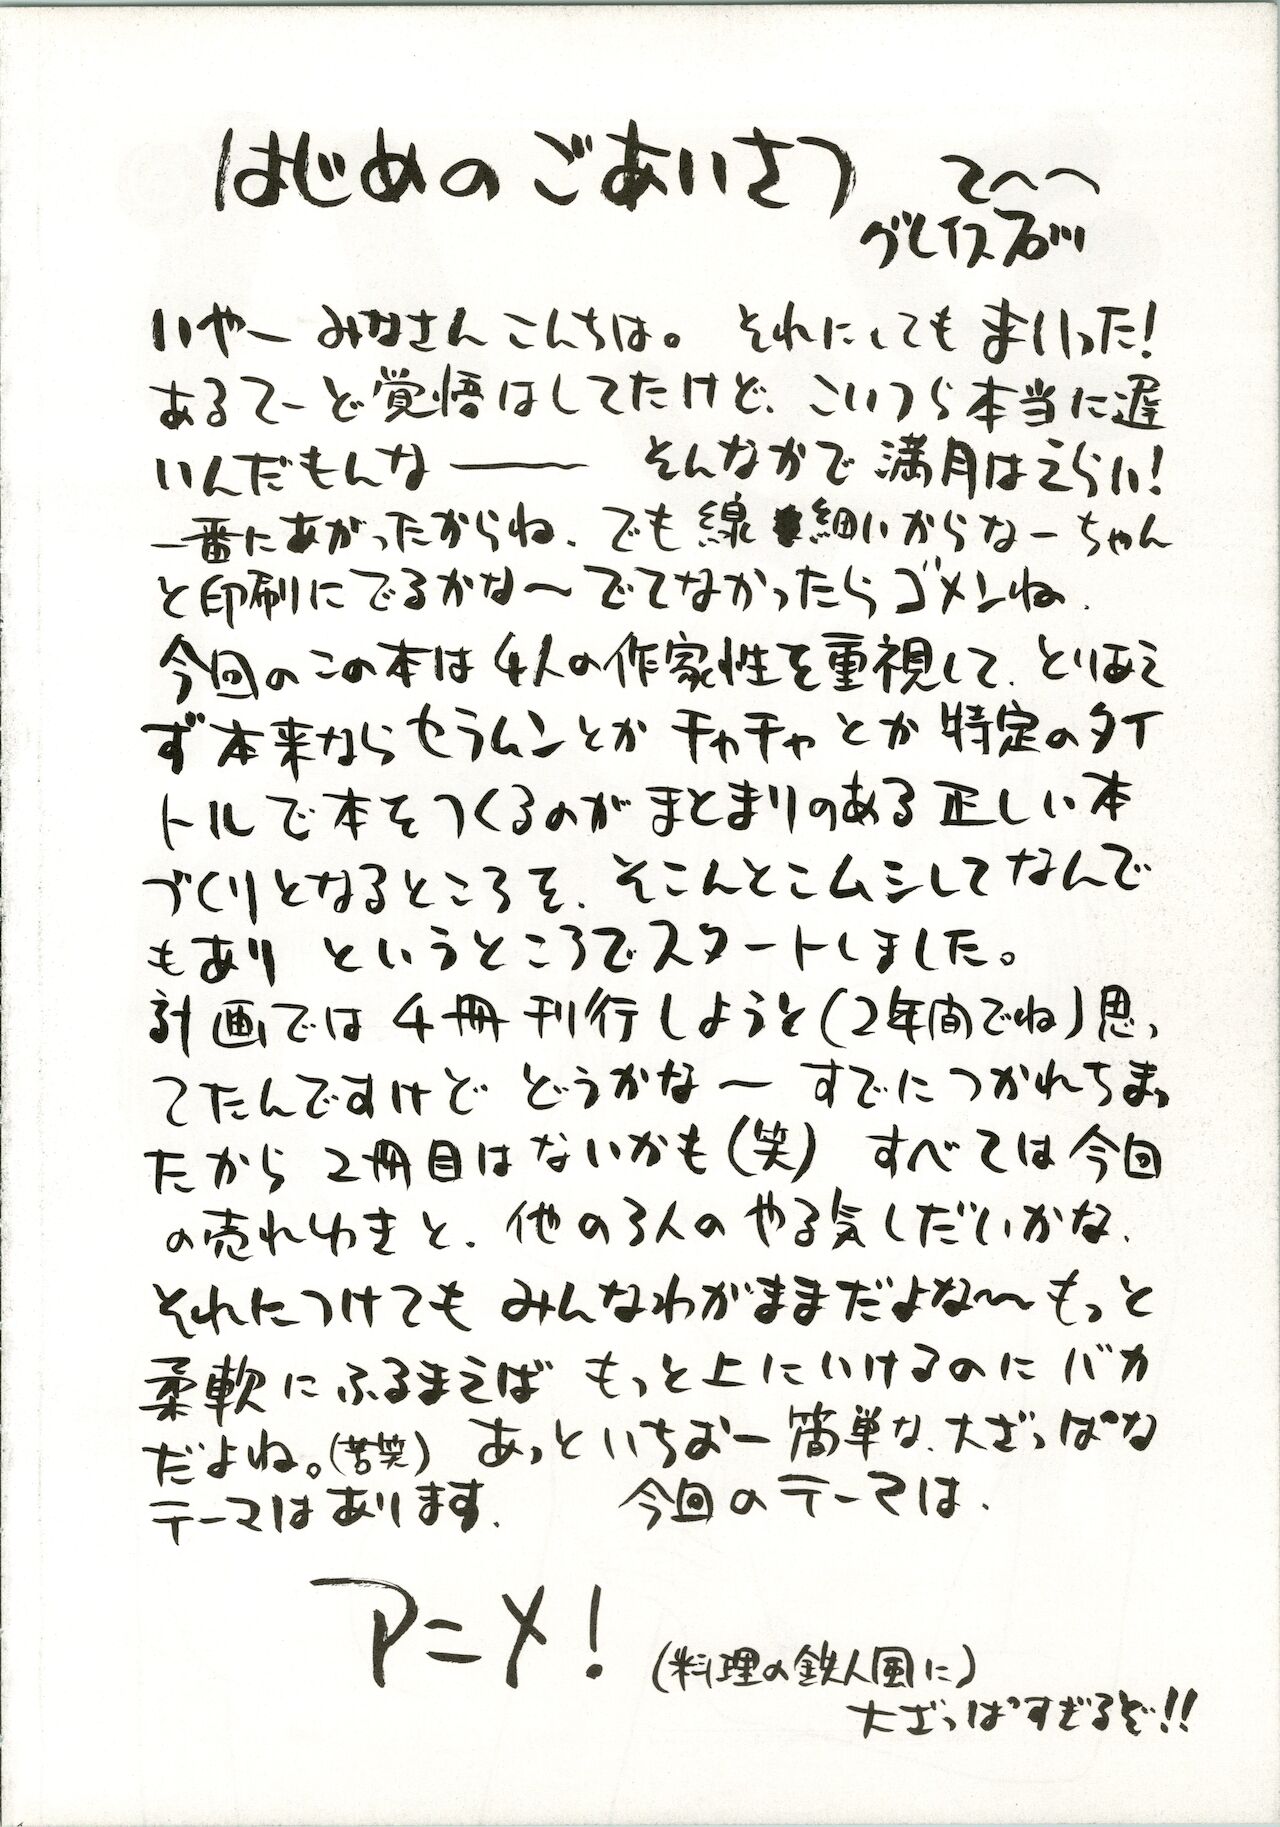 はじめのごあいさつ てへへ
グレイスズ
いやー みなさんこんちは。 それにしてもまいった!
あるてーど覚悟はしてたけど、こいつら本当に遅
いんだもんな―― そんなかで満月はえらい!
一番にあがったからね、でも線 細いからなーちゃん
と印刷にでるかな〜でてなかったらゴメンね、
今回のこの本は4人の作家性を重視して、とりあえ
ず本来ならセラムンとかチャチャとか特定のタイ
トルで本をつくるのがまとまりのある正しい本
づくりとなるところを、そこんとこムシしてなんで
もあり というところでスタートしました。
計画では4冊刊行しようと(2年間でね)思っ
てたんですけど どうかな〜 すでにつかれちまっ
たから 2冊目はないかも(笑) すべては今回
の売れゆきと、他の3人のやる気しだいかな、
それにつけても みんなわがままだよな〜もっと
柔軟にふるまえば もっと上にいけるのにバカ
だよね。(苦笑) あっといちおー簡単な、大ざっぱな
テーマはあります、 今回のテーマは、
アニメ!
(料理の鉄人風に)
大ざっぱすぎるぞ!!